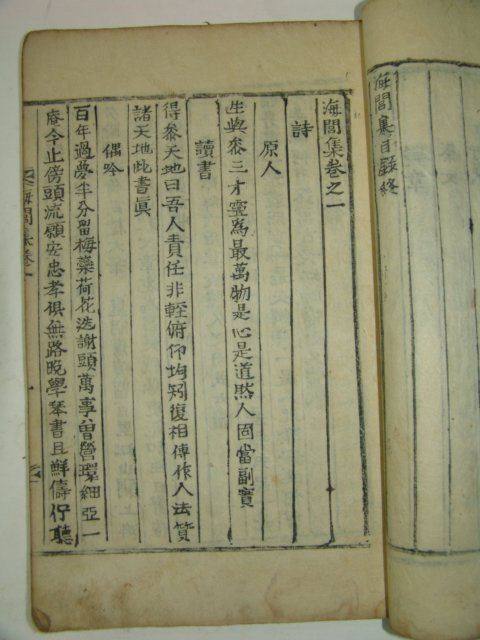 海閭集目錄終
海閭集卷之一
詩
原人
生與參三才靈爲最萬物是心是道然人固當副實
讀書
得參天地曰吾人責任非輕俯仰均知復相傳作人法質
諸天地此書眞
偶吟
百年過夢半分留梅蘂荷花迭謝頭萬事曾營環細亞一
庵今止傍頭流願安忠孝俱無路晩學琴書且鮮儔佇聽
海閭集卷一